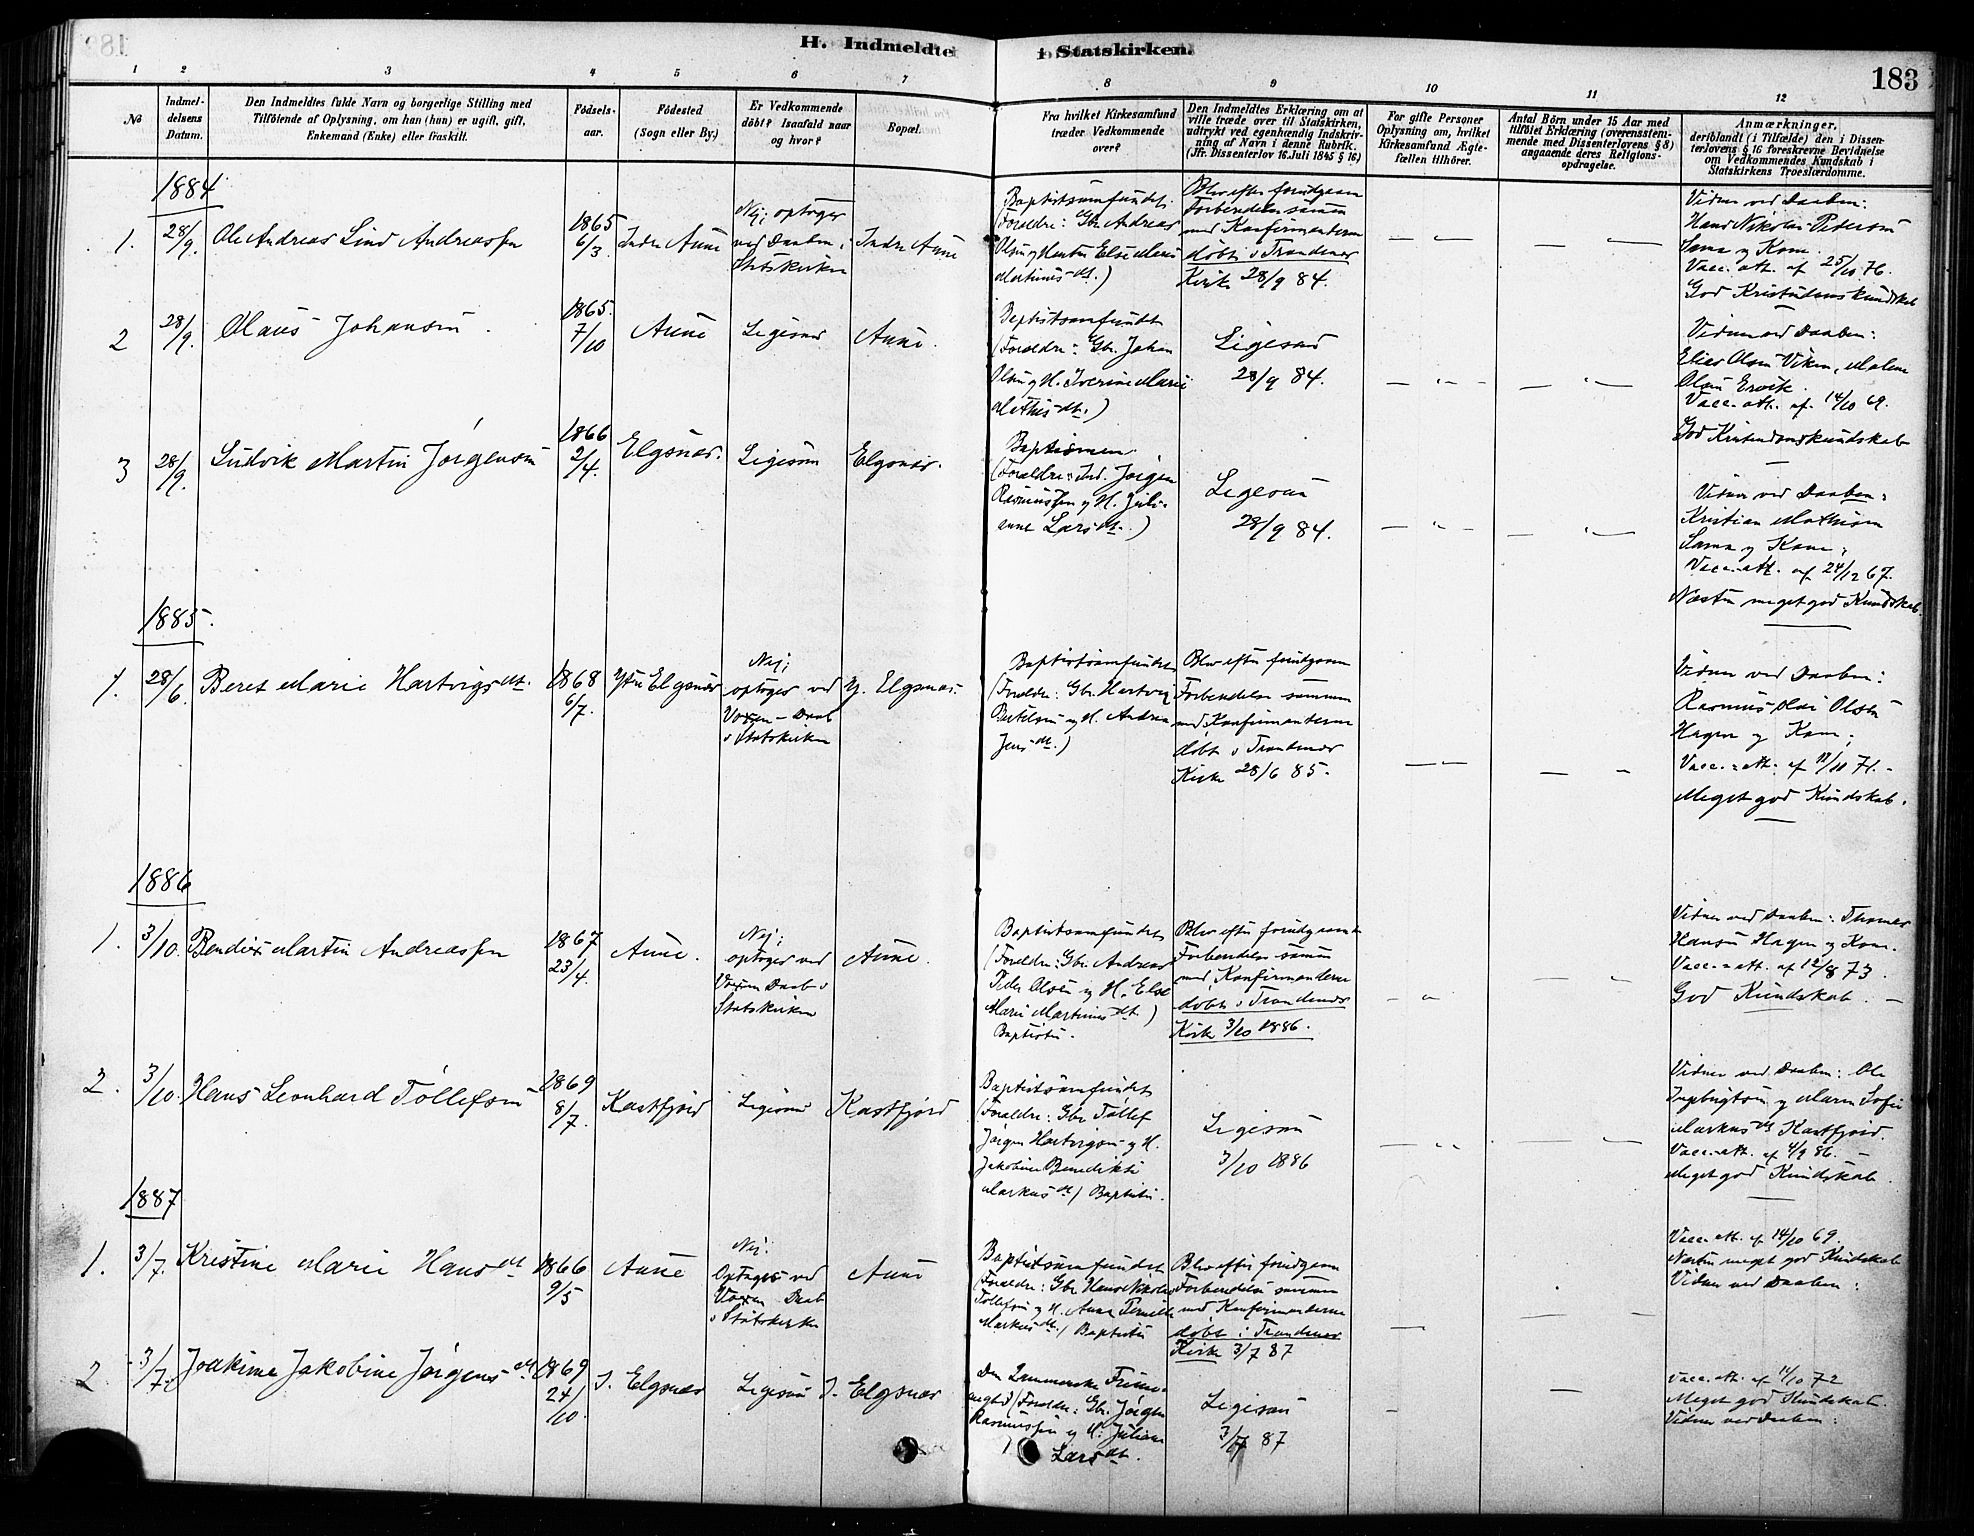 H. Indmeldte i Statskirken.
183
1 2 3 4 5 6 7 8 9 10 11 12
No
Indmel-
delsens
Datum.
Den Indmeldtes fulde Navn og borgerlige Stilling med
Tilføiende af Oplysning, om han (hun) er ugift, gift,
Enkemand (Enke) eller fraskilt.
Fødsels-
aar.
Fødested
(Sogn eller By.)
Er Vedkommende
døbt? Isaafald naar
og hvor?
Bopæl.
Fra hvilket Kirkesamfund
træder Vedkommende
over?
Den Indmeldtes Erklæring om at
ville træde over til Statskirken,
udtrykt ved egenhændig Indskriv-
ning af Navn i denne Rubrik.
(Jfr. Dissenterlov 16. Juli 1845 § 16)
For gifte Personer
Oplysning om, hvilket
Kirkesamfund Ægte-
fællen tilhører.
Antal Børn under 15 Aar med
tilføiet Erklæring (overensstem-
mende med Dissenterlovens § 8)
angaaende deres Religions-
opdragelse.
Anmærkninger,
deriblandt (i Tilfælde) den i Dissen-
terlovens § 16 foreskrevne Bevidnelse
om Vedkommendes Kundskab i
Statskirkens Troeslærdomme.
1884
1. 28/9. Ole Andreas Lind Andreassen
1865
6/3.
Indre Aune
Nej; optoges
ved Daaben i
Statskirken
Indre Aune
Baptistsamfundet.
(Foreldre: Gbr. Andreas
Olsen og Hustru Else Marie
Martinusdt.)
Blev efter forudgaaen
Forberedelse sammen
med Konfirmanterne
døbt i Trondenes
Kirke 28/9 84.
Vidner ved Daaben:
Hans Nikolai Pedersen
Sama og Kone.
Vacc. att. af 25/10 76.
God Kristendomskundskab
2 28/9. Olaus Johansen.
1865.
7/10
Aune
Ligesaa
Aune.
Baptistsamfundet
(Foreldre: Gbr. Johan
Olsen og H. Iverine Marie
Mathisdt.)
Ligesaa
28/9 84.
Vidner ved Daaben:
Elias Olsen Viken, Malene
Olsen Ervik.
Vacc. att. af 14/10 69.
God Kristendomskundskab
3 28/9. Ludvik Martin Jørgensen
1866
2/4.
Elgsnæs.
Ligesaa
Elgsnæs.
Baptismen
(Foreldre: Ind. Jørgen
Rasmussen og H. Juli-
anne Larsdt.)
Ligesaa
28/9 84.
Vidner ved Daaben:
Kristian Mathisen
Sama og Kone.
Vacc. att. af 24/12 67.
Næsten meget god Kundskab.
1885.
1. 28/6. Beret Marie Hartvigsdt.
1868
6/7.
Ytre Elgsnæs
Nej;
optoges ved
Voxen-Daab
i Statskirken
Y. Elgsnæs.
Baptistsamfundet
(Foreldre: Gbr. Hartvig
Bertelsen og H. Andrea
Jensdt.)
Blev efter forudgaaen
Forberedelse sammen
med Konfirmanterne
døbt i Trondenes
Kirke 28/6 85.
Vidner ved Daaben:
Rasmus Olai Olsen
Hagen og Kone;
Vacc. att. af 11/11 71.
Meget god Kundskab.
1886
1. 3/10. Bendix Martin Andreassen
1867
23/4.
Aune.
Nej;
optoges ved
Voxen Daab i
Statskirken
Aune.
Baptistsamfundet
(Foreldre: Gbr. Andreas
Peder Olsen og H. Else
Marie Martinusdt)
Baptister.
Blev efter forudgaaende
Forberedelse sammen
med Konfirmanterne
døbt i Trondenes
Kirke 3/10 1886.
Vidner ved Daaben: Thomas
Hansen Hagen og Kone.
Vacc. att. af 12/8 73.
God Kundskab.
2. 3/10. Hans Leonhard Tollefsen
1869
8/7.
Kastfjord
Ligesaa
Kastfjord
Baptistsamfundet
(Foreldre: Gbr. Tollef
Jørgen Hartvigsen og H.
Jakobine Benedikte
Markusdt) Baptister.
Ligesaa
3/10 1886
Vidner ved Daaben: Ole
Ingebrigtsen og Maren Sofie
Markusdt Kastfjord.
Vacc. att. af 4/9 86.
Meget god Kundskab.
1887
1. 3/7. Kristine Marie Hansdt
1866
9/5
Aune
Nej.
Optoges ved
Voxen Daab
i Statskirken
Aune
Baptistsamfundet
(Foreldre: Gbr. Hans Nikolai
Tollefsen og H. Anne Pernille
Markusdt.) Baptister
Blev efter forudgaaen
Forberedelse sammen
med Konfirmanterne
døbt i Trondenes
Kirke 3/7 87
Vacc. att. af 14/10 69.
Næsten meget god Kundskab
Vidner ved Daaben:
2 3/7. Joakime Jakobine Jørgensdt
1869
24/10.
I. Elgsnæs
Ligesaa
I. Elgsnæs
Den Lammerske Frime-
nighed (Foreldre: Gbr. Jørgen
Rasmussen og H. Juliane
Larsdt.)
Ligesaa
3/7 87
Vacc. att. af 14/10 72
Meget god Kundskab.
Vidner ved Daaben: